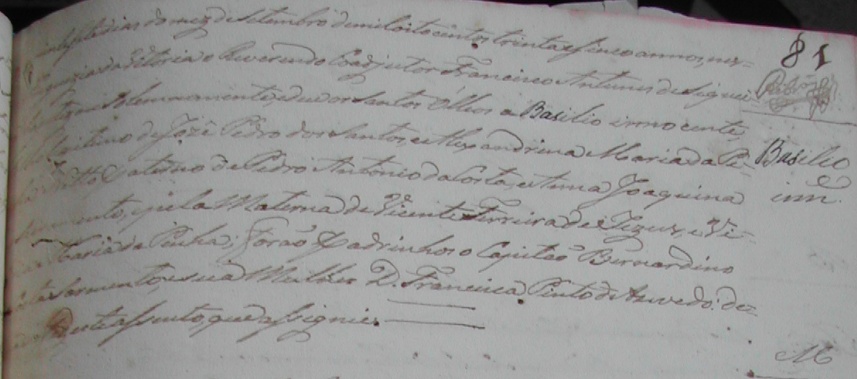 dias do mez de Setembro de mil oito centos trinta e sinco annos, nes-
da Vitoria o Reverendo Coadjutor Francisco Antunes de Siquei-
solemnemente, e deu os Santos Olleos a Basilio innocente,
de Jozé Pedro dos Santos, e Alexandrina Maria da
Paterno de Pedro Antonio da Costa, e Anna Joaquina
e pela Materna de Vicente Ferreira de Jezus, e
Maria da Penha; forão Padrinhos o Capitão Bernardino
Sarmento, e sua Mulher D. Francisca Pinto de Azevedo: de
este assento, que assignei.
81
Basilio
inn.e